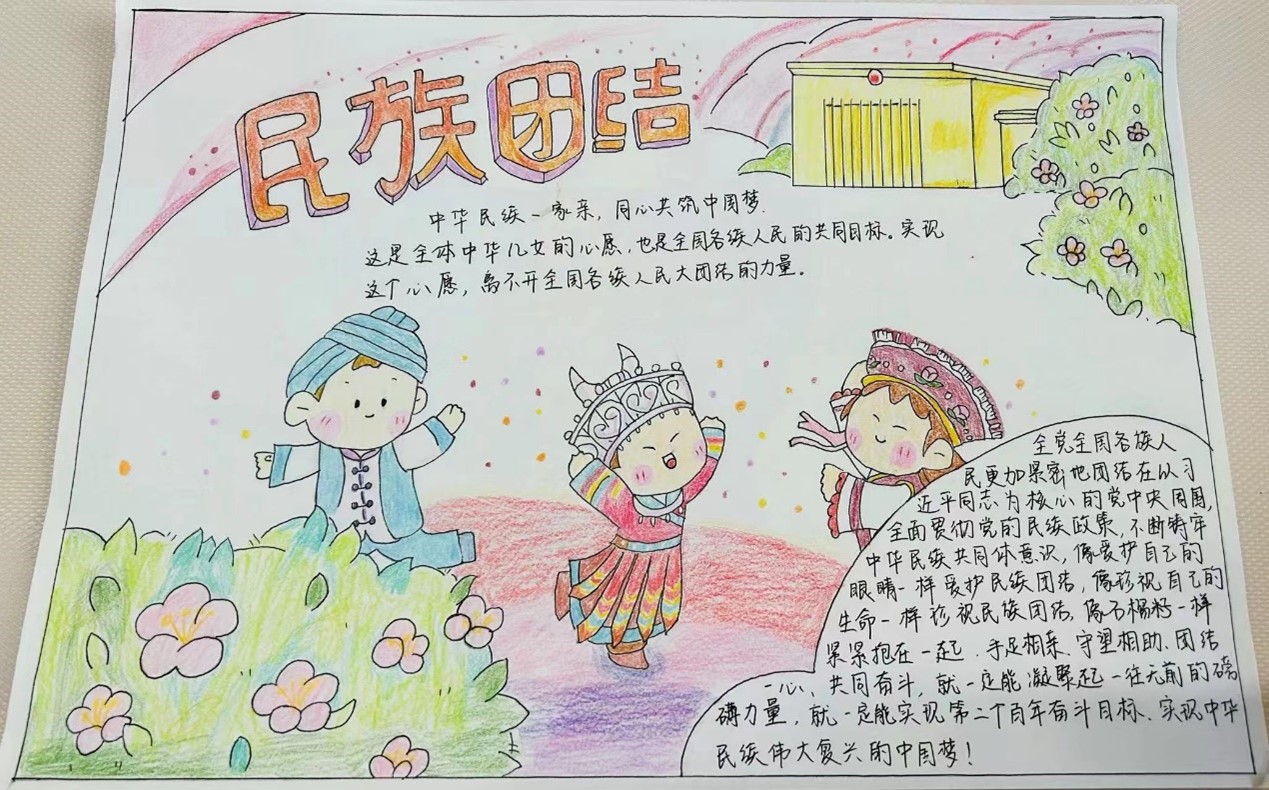 民族团结
中华民族一家亲，同心共筑中国梦.
这是全体中华儿女的心愿，也是全国各族人民的共同目标。实现
这个心愿，离不开全国各族人民大团结的力量。
全党全国各族人
民更加紧密地团结在以习
近平同志为核心的党中央周围，
全面贯彻党的民族政策，不断铸牢
中华民族共同体意识，像爱护自己的
眼睛一样爱护民族团结，像珍视自己的
生命一样珍视民族团结，像石榴籽一样
紧紧抱在一起、手足相亲、守望相助、团结
一心、共同奋斗，就一定能凝聚起一往无前的磅
礴力量，就一定能实现第二个百年奋斗目标、实现中华
民族伟大复兴的中国梦！